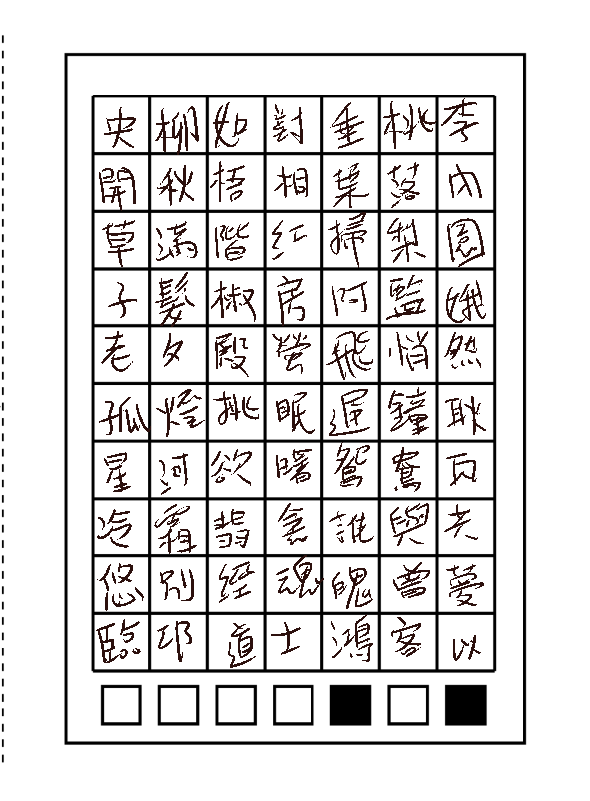 央柳如對垂桃李
開秋梧相葉落內
草滿階紅掃梨園
子髮椒房阿監娥
老夕殿螢飛悄然
孤燈挑眠遲鐘耿
星河欲曙鴛鴦瓦
冷霜翡衾誰與共
悠別經魂魄曾夢
臨邛道士鴻客以